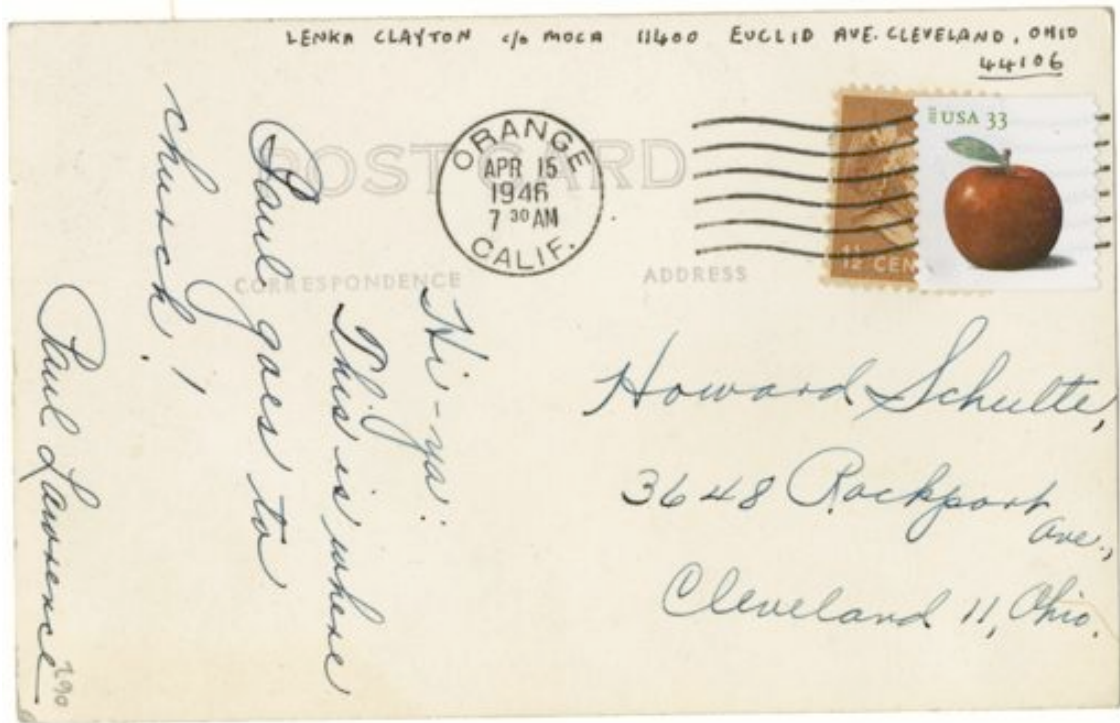 LENKA CLAYTON c/o MOCA 11400 EUCLID AVE. CLEVELAND, OHIO
44106
POST CARD
ORANGE
APR 15
1946
7 30 AM
CALIF.
USA 33
1½ CEN
CORRESPONDENCE
ADDRESS
Hi-ya:
This is where
Paul goes to
church!
Paul Lawrence
290
Howard Schulte,
3648 Rockport
Ave.,
Cleveland 11, Ohio.